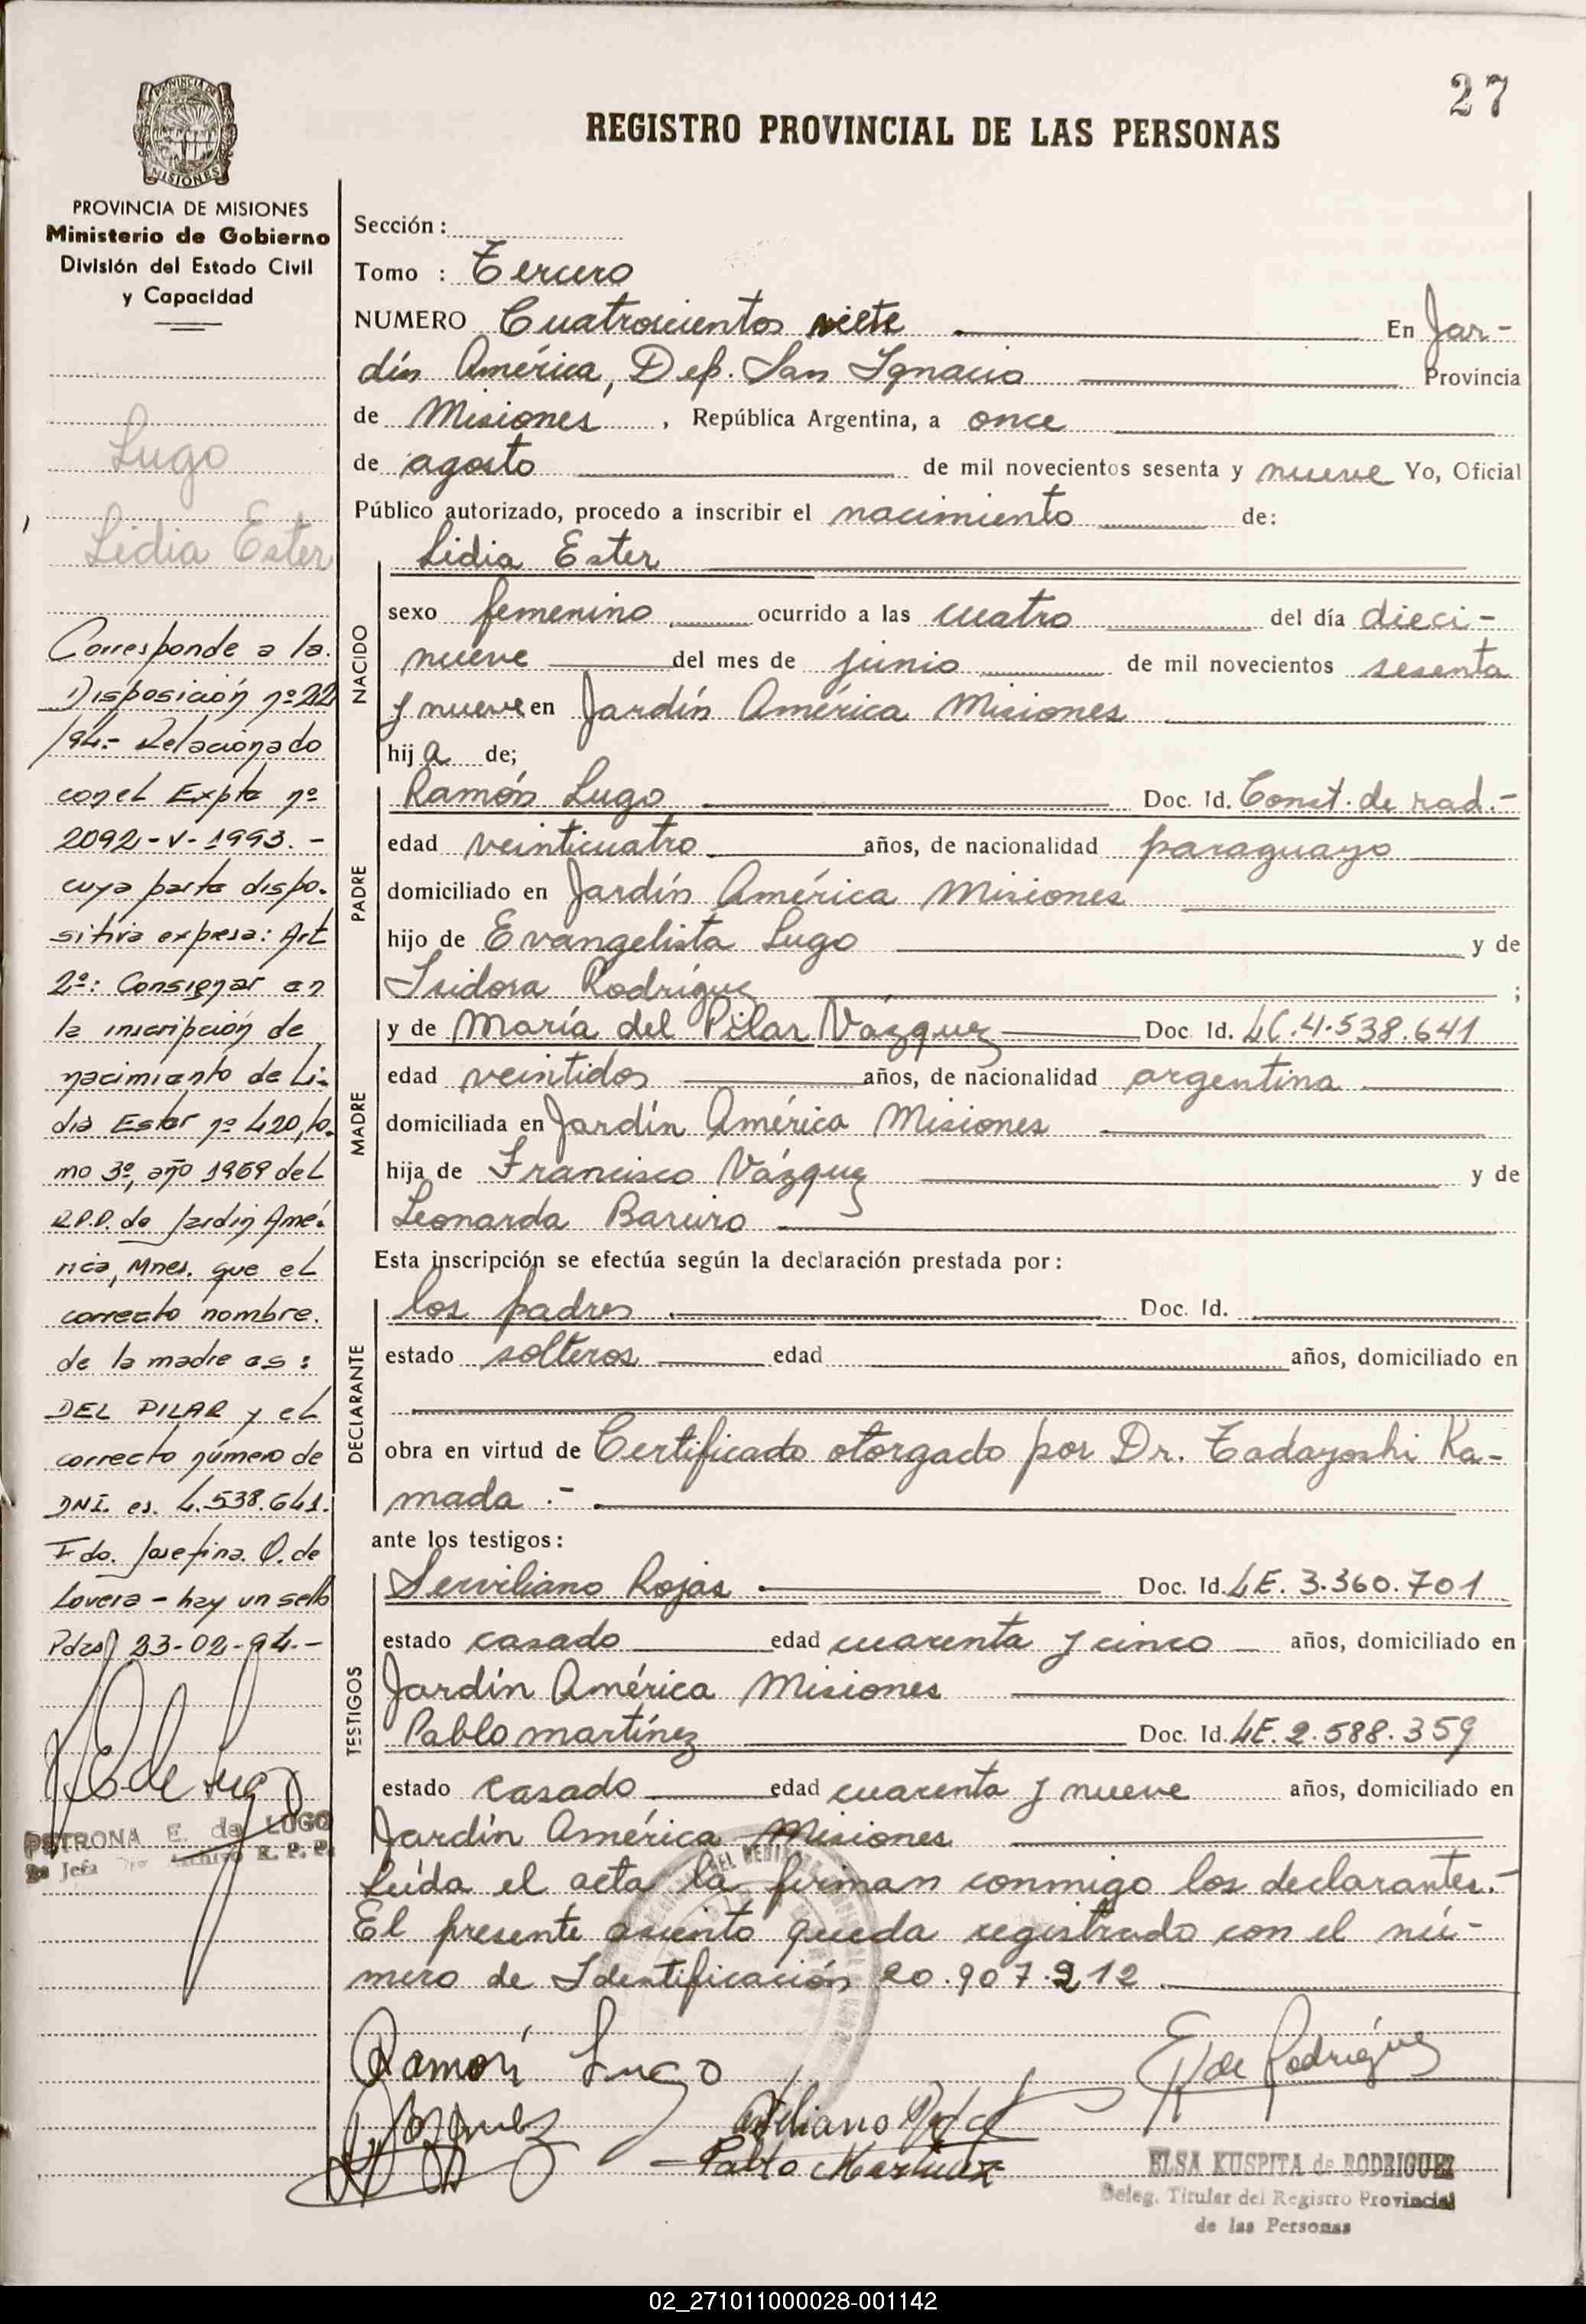 27
REGISTRO PROVINCIAL DE LAS PERSONAS
PROVINCIA DE MISIONES
Ministerio de Gobierno
División del Estado Civil
y Capacidad
Lugo
Lidia Ester
Corresponde a la
Disposición nº 22
/94.- Relacionado
con el Expte nº
2092-V-1993.-
cuya parte dispo-
sitiva expresa: Art
2º: Consignar en
la inscripción de
nacimiento de Li-
dia Ester nº 420, to-
mo 3º, año 1969 del
R.P.P. de Jardín Amé-
rica, Mnes. que el
correcto nombre
de la madre es:
DEL PILAR y el
correcto número de
DNI. es. 4.538.641.
Fdo. Josefina. O. de
Lovera - hay un sello
Pdas) 23-02-94.-
PETRONA E. de LUGO
Archivo R. P. P.
Sección:
Tomo : Tercero
NUMERO Cuatrocientos siete En Jar-
dín América, Dep. San Ignacio Provincia
de Misiones, República Argentina, a once
de agosto de mil novecientos sesenta y nueve Yo, Oficial
Público autorizado, procedo a inscribir el nacimiento de:
NACIDO
Lidia Ester
sexo femenino ocurrido a las cuatro del día dieci-
nueve del mes de junio de mil novecientos sesenta
y nueve en Jardín América Misiones
hija de;
PADRE
Ramón Lugo Doc. Id. Const. de rad.-
edad veinticuatro años, de nacionalidad paraguayo
domiciliado en Jardín América Misiones
hijo de Evangelista Lugo y de
Isidora Rodríguez ;
MADRE
y de María del Pilar Vazquez Doc. Id. LC.4.538.641
edad veintidos años, de nacionalidad argentina
domiciliada en Jardín América Misiones
hija de Francisco Vázquez y de
Leonarda Bareiro
Esta inscripción se efectúa según la declaración prestada por:
DECLARANTE
los padres Doc. Id.
estado solteros edad años, domiciliado en
obra en virtud de Certificado otorgado por Dr. Tadayoshi Ka-
mada .-
ante los testigos:
TESTIGOS
Serviliano Rojas Doc. Id. LE. 3.360.701
estado casado edad cuarenta y cinco años, domiciliado en
Jardín América Misiones
Pablo martínez Doc. Id. LE. 2.588.359
estado casado edad cuarenta y nueve años, domiciliado en
Jardín América Misiones
Leída el acta la firman conmigo los declarantes.-
El presente asiento queda registrado con el nú-
mero de Identificación 20.907.212
Ramón Lugo
E K de Rodríguez
Vazquez
Pablo Martinez
ELSA KUSPITA de RODRIGUEZ
Deleg. Titular del Registro Provincial
de las Personas
02_271011000028-001142